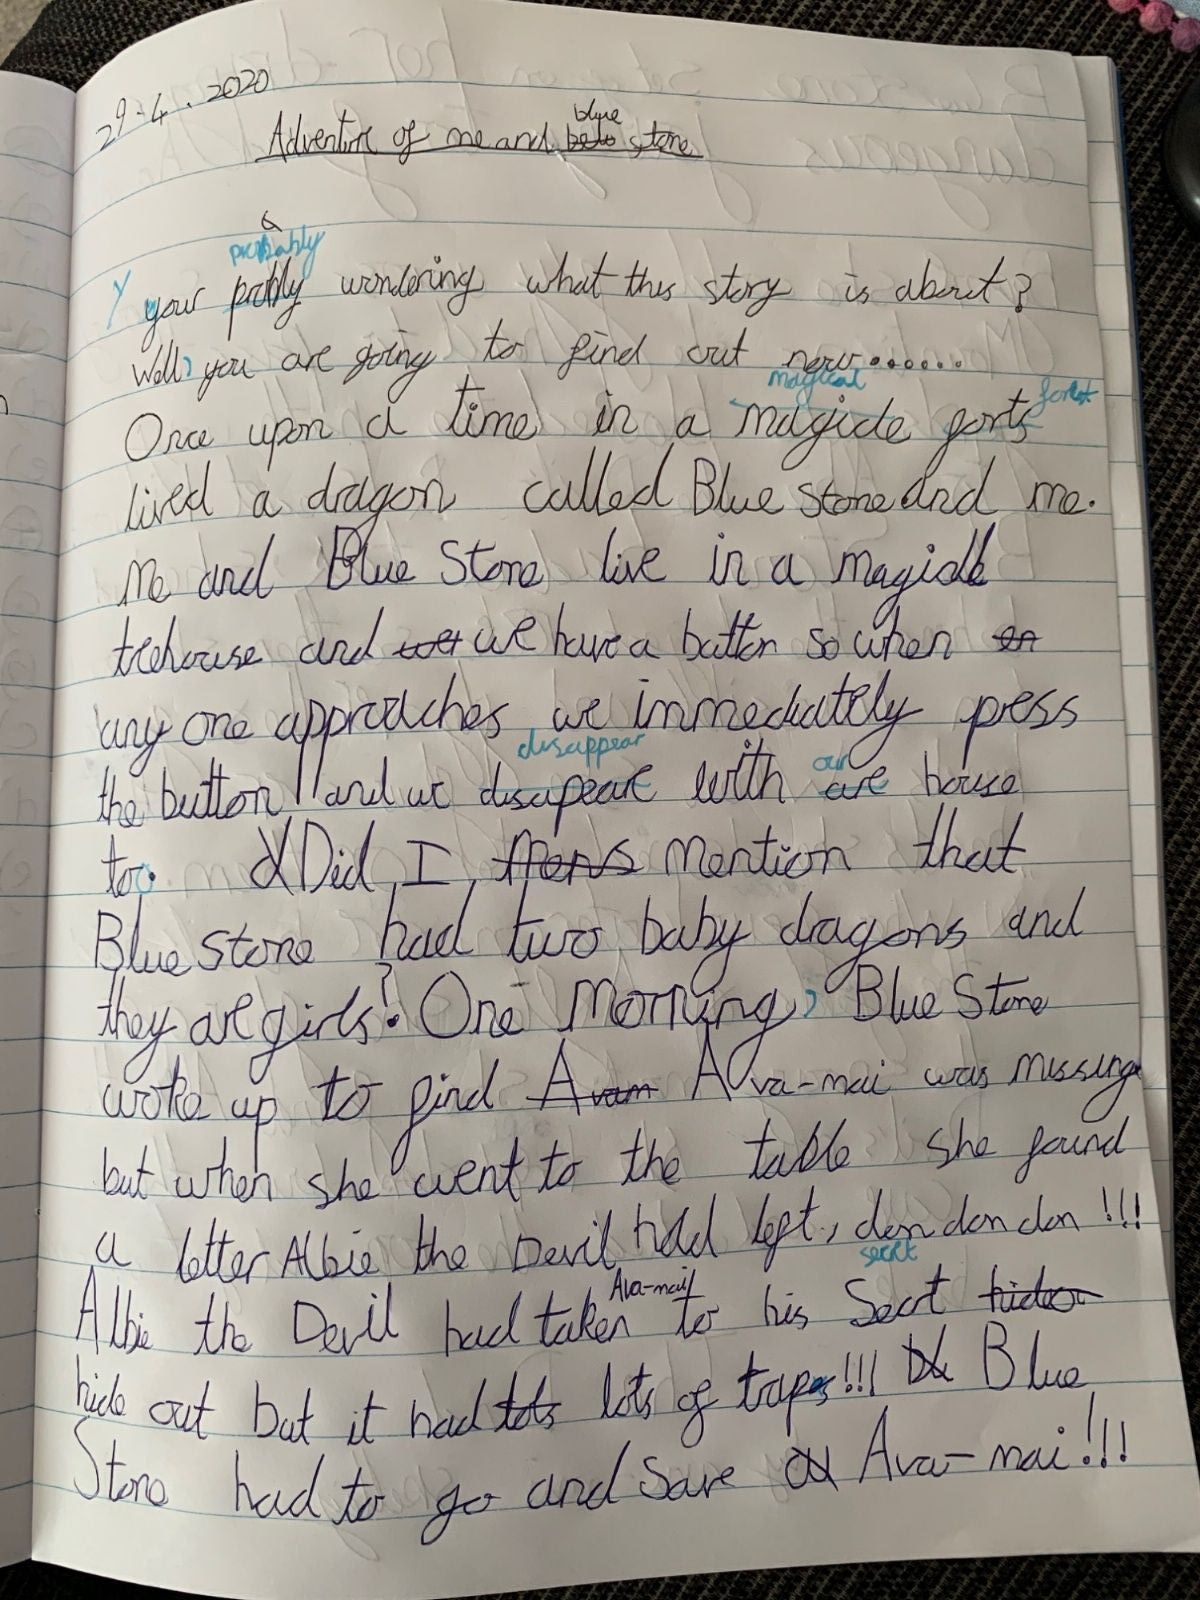 29.4.2020
blue
Adventure of me and stone
probably
Y your probly wondering what this story is about?
Well, you are going to find out now......
magical forest
Once upon a time in a magicle forts
lived a dragon called Blue stone and me.
Me and Blue Stone live in a magicle
treehouse and we have a button so when
any one approaches we immediately press
disappear our
the button and we disapeare with are house
to. Did I Mention that
Blue stone had two baby dragons and
they are girls? One Morning, Blue Stone
woke up to find Ava-mai was missing
but when she went to the table she found
a letter Albie the Devil had left, don don don !!!
secret
Ava-mai
Albie the Devil had taken to his Secrt
hide out but it had lots of traps!!! Blue
Stone had to go and save Ava-mai!!!